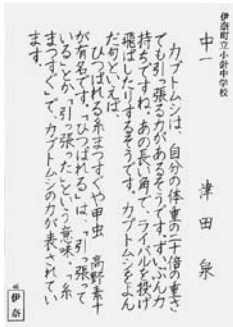 伊奈町立小針中学校
中一　津田泉
カブトムシは、自分の体重の二十倍の重さ
でも引っ張る力があるそうです。ずいぶん力
持ちですね。あの長い角で、ライバルを投げ
飛ばしたりするそうです。カブトムシをよん
だ句といえば、
ひっぱれる糸まっすぐや甲虫　高野素十
が有名です。「ひっぱれる」は、「引っ張って
いる」とか、「引っ張った」という意味、「糸
まっすぐ」で、カブトムシの力が表されてい
ます。
伊奈